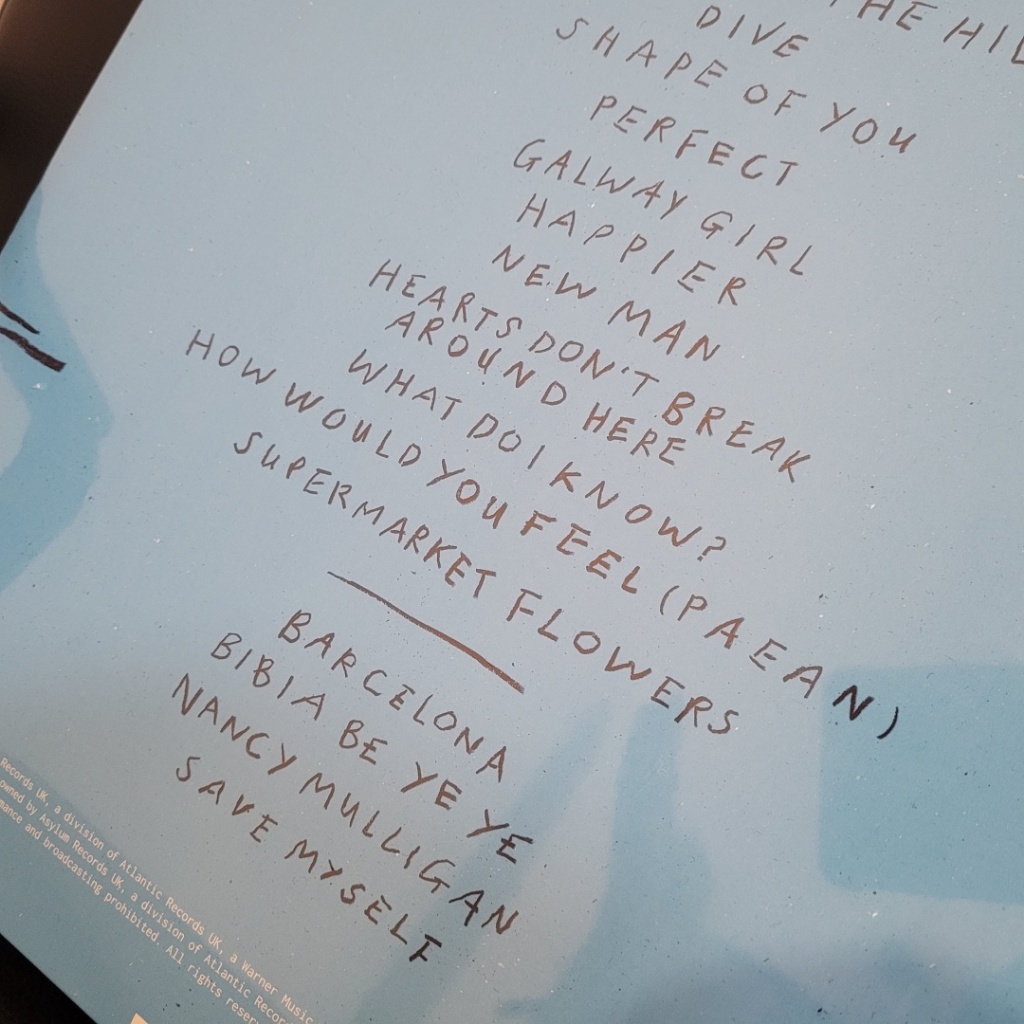 THE HIL
DIVE
SHAPE OF YOU
PERFECT
GALWAY GIRL
HAPPIER
NEW MAN
HEARTS DON'T BREAK
AROUND HERE
WHAT DO I KNOW?
HOW WOULD YOU FEEL (PAEAN)
SUPERMARKET FLOWERS
BARCELONA
BIBIA BE YE YE
NANCY MULLIGAN
SAVE MYSELF
Records UK, a division of Atlantic Records UK, a Warner Music
owned by Asylum Records UK, a division of Atlantic Recor
mance and broadcasting prohibited. All rights reser